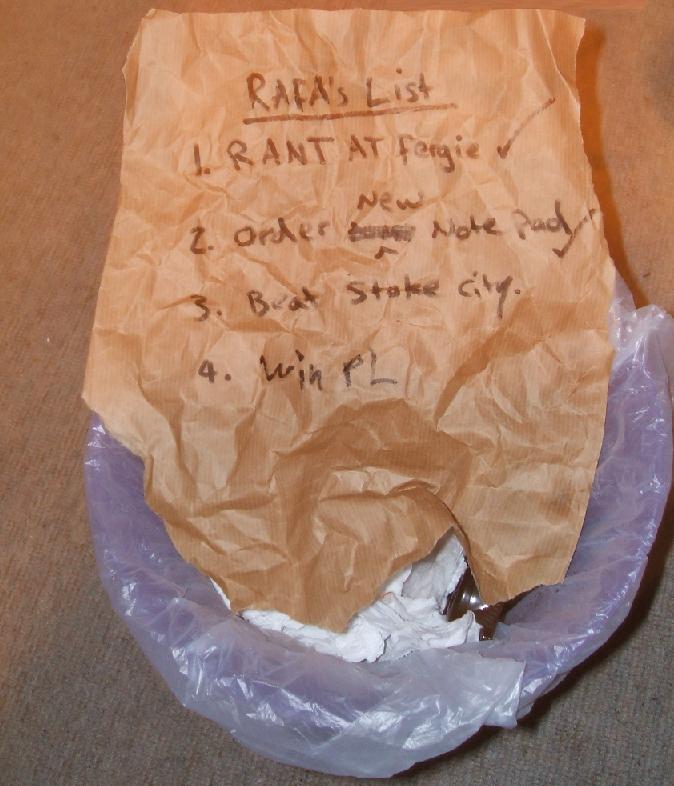 RAFA's List
1. RANT AT Fergie ✓
New
2. Order Note Pad ✓
3. Beat Stoke City.
4. Win PL